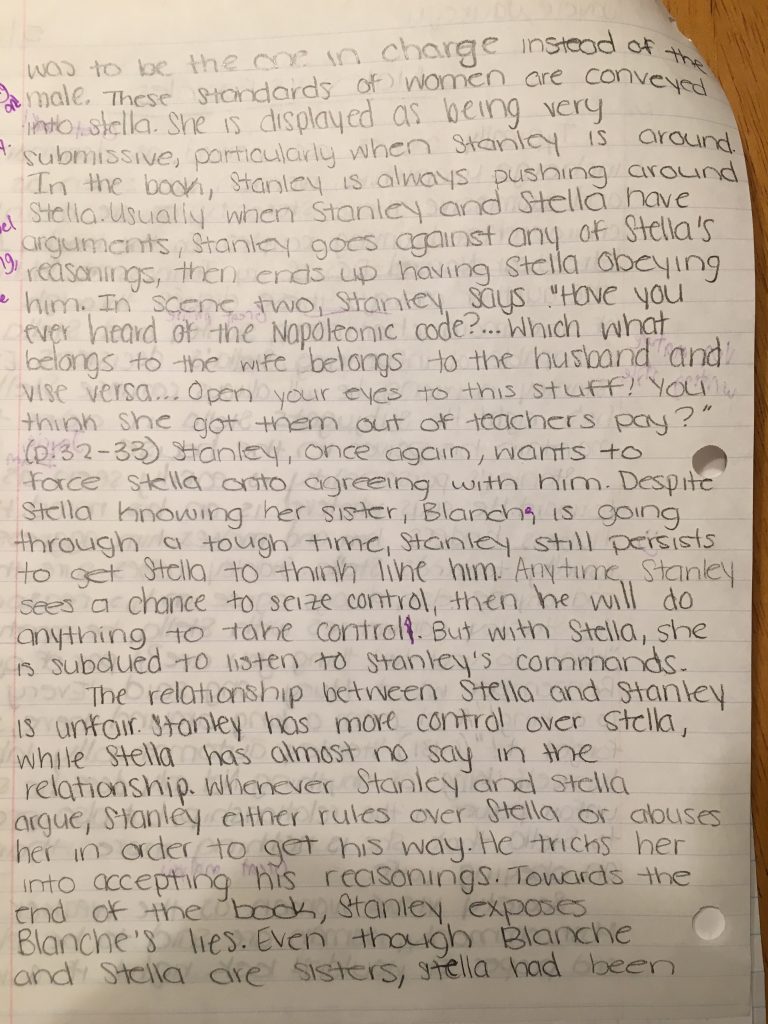 was to be the one in charge instead of the
male. These standards of women are conveyed
into stella. She is displayed as being very
submissive, particularly when Stanley is around.
In the book, Stanley is always pushing around
Stella. Usually when Stanley and Stella have
arguments, Stanley goes against any of Stella's
reasonings, then ends up having Stella obeying
him. In scene two, Stanley says "Have you
ever heard of the Napoleonic code?... Which what
belongs to the wife belongs to the husband and
vise versa... Open your eyes to this stuff! You
think she got them out of teachers pay?"
(p.32-33) Stanley, once again, wants to
force Stella onto agreeing with him. Despite
Stella knowing her sister, Blanche, is going
through a tough time, Stanley still persists
to get Stella to think like him. Anytime Stanley
sees a chance to seize control, then he will do
anything to take control. But with Stella, she
is subdued to listen to Stanley's commands.
The relationship between Stella and Stanley
is unfair. Stanley has more control over Stella,
while Stella has almost no say in the
relationship. Whenever Stanley and Stella
argue, Stanley either rules over Stella or abuses
her in order to get his way. He tricks her
into accepting his reasonings. Towards the
end of the book, Stanley exposes
Blanche's lies. Even though Blanche
and Stella are sisters, Stella had been